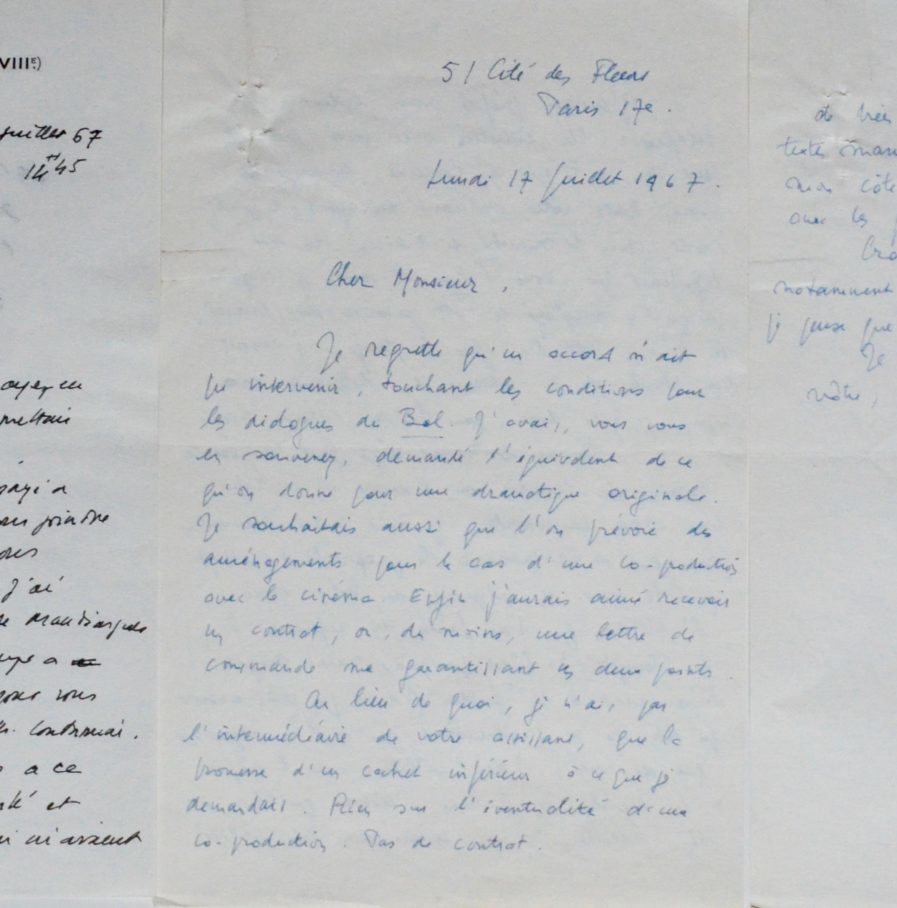 VIIIE)
juillet 67
14H45
oyez en
mettais
a
joindre
J'ai
a
vous
continuai.
a ce
et
m'avaient
51 Cité des Fleurs
Paris 17e.
Lundi 17 Juillet 1967.
Cher Monsieur,
Je regrette qu'un accord n'ait
pu intervenir, touchant les conditions pour
les dialogues du Bal. J'avais, vous vous
en souvenez, demandé l'équivalent de ce
qu'on donne pour une dramatique originale.
Je souhaitais aussi que l'on prévoie des
aménagements pour le cas d'une co-production
avec le cinéma. Enfin j'aurais aimé recevoir
un contrat, ou, du moins, une lettre de
commande me garantissant ces deux points.
Au lieu de quoi, je n'ai, par
l'intermédiaire de votre assistante, que la
promesse d'un cachet inférieur à ce que je
demandais. Rien sur l'éventualité d'une
co-production. Pas de contrat.
de très
textes
mon côté
avec les
notamment
je pense que
Je
vôtre,